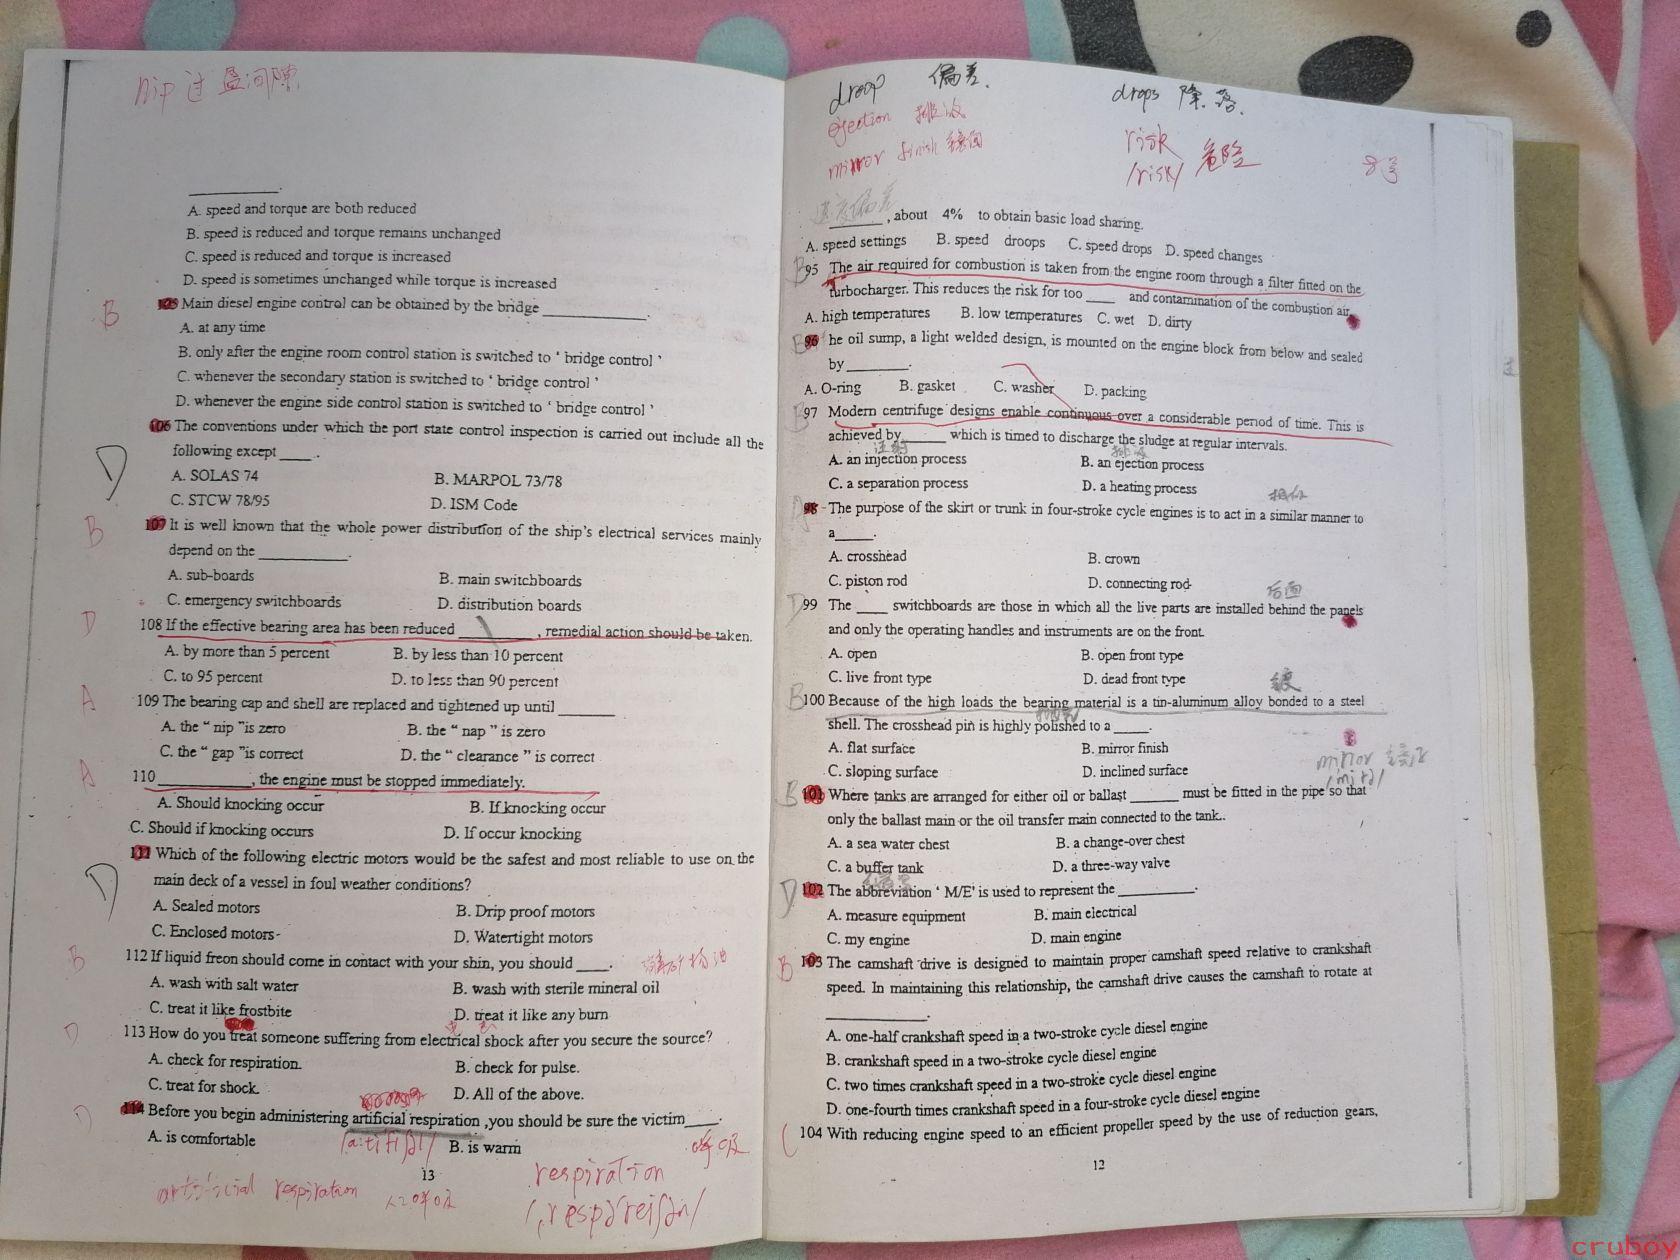 nip 过盈间隙
__________.
A. speed and torque are both reduced
B. speed is reduced and torque remains unchanged
C. speed is reduced and torque is increased
D. speed is sometimes unchanged while torque is increased
B 105 Main diesel engine control can be obtained by the bridge ____________.
A. at any time
B. only after the engine room control station is switched to ‘ bridge control ’
C. whenever the secondary station is switched to ‘ bridge control ’
D. whenever the engine side control station is switched to ‘ bridge control ’
106 The conventions under which the port state control inspection is carried out include all the
D following except ____ .
A. SOLAS 74 B. MARPOL 73/78
C. STCW 78/95 D. ISM Code
B 107 It is well known that the whole power distribution of the ship's electrical services mainly
depend on the __________.
A. sub-boards B. main switchboards
C. emergency switchboards D. distribution boards
D 108 If the effective bearing area has been reduced ________ , remedial action should be taken.
A. by more than 5 percent B. by less than 10 percent
C. to 95 percent D. to less than 90 percent
A 109 The bearing cap and shell are replaced and tightened up until ______
A. the “ nip ”is zero B. the “ nap ” is zero
C. the “ gap ”is correct D. the “ clearance ” is correct
A 110 __________, the engine must be stopped immediately.
A. Should knocking occur B. If knocking occur
C. Should if knocking occurs D. If occur knocking
111 Which of the following electric motors would be the safest and most reliable to use on the
D main deck of a vessel in foul weather conditions?
A. Sealed motors B. Drip proof motors
C. Enclosed motors D. Watertight motors
B 112 If liquid freon should come in contact with your shin, you should ____.
A. wash with salt water B. wash with sterile mineral oil
C. treat it like frostbite D. treat it like any burn
D 113 How do you treat someone suffering from electrical shock after you secure the source?
A. check for respiration. B. check for pulse.
C. treat for shock. D. All of the above.
D 114 Before you begin administering artificial respiration ,you should be sure the victim____.
A. is comfortable B. is warm 呼吸
13
respiration
respiration 人工呼吸
droop 偏差. drops 降.落.
ejection 排放
mirror finish 镜面
risk
/risk/ 危险
速度偏差
______, about 4% to obtain basic load sharing.
A. speed settings B. speed droops C. speed drops D. speed changes
B 95 The air required for combustion is taken from the engine room through a filter fitted on the
turbocharger. This reduces the risk for too ____ and contamination of the combustion air.
A. high temperatures B. low temperatures C. wet D. dirty
B 96 he oil sump, a light welded design, is mounted on the engine block from below and sealed
by ________.
A. O-ring B. gasket C. washer D. packing
B 97 Modern centrifuge designs enable continuous over a considerable period of time. This is
achieved by ______ which is timed to discharge the sludge at regular intervals.
注射 排放
A. an injection process B. an ejection process
C. a separation process D. a heating process
相似
A 98 The purpose of the skirt or trunk in four-stroke cycle engines is to act in a similar manner to
a_____.
A. crosshead B. crown
C. piston rod D. connecting rod
后面
D 99 The ____ switchboards are those in which all the live parts are installed behind the panels
and only the operating handles and instruments are on the front.
A. open B. open front type
C. live front type D. dead front type
B 100 Because of the high loads the bearing material is a tin-aluminum alloy bonded to a steel
shell. The crosshead pin is highly polished to a _____.
A. flat surface B. mirror finish
C. sloping surface D. inclined surface
mirror
B 101 Where tanks are arranged for either oil or ballast ______ must be fitted in the pipe so that
only the ballast main or the oil transfer main connected to the tank..
A. a sea water chest B. a change-over chest
C. a buffer tank D. a three-way valve
D 102 The abbreviation ‘ M/E’ is used to represent the __________.
A. measure equipment B. main electrical
C. my engine D. main engine
B 103 The camshaft drive is designed to maintain proper camshaft speed relative to crankshaft
speed. In maintaining this relationship, the camshaft drive causes the camshaft to rotate at
____________.
A. one-half crankshaft speed in a two-stroke cycle diesel engine
B. crankshaft speed in a two-stroke cycle diesel engine
C. two times crankshaft speed in a two-stroke cycle diesel engine
D. one-fourth times crankshaft speed in a four-stroke cycle diesel engine
C 104 With reducing engine speed to an efficient propeller speed by the use of reduction gears,
12
cruboy